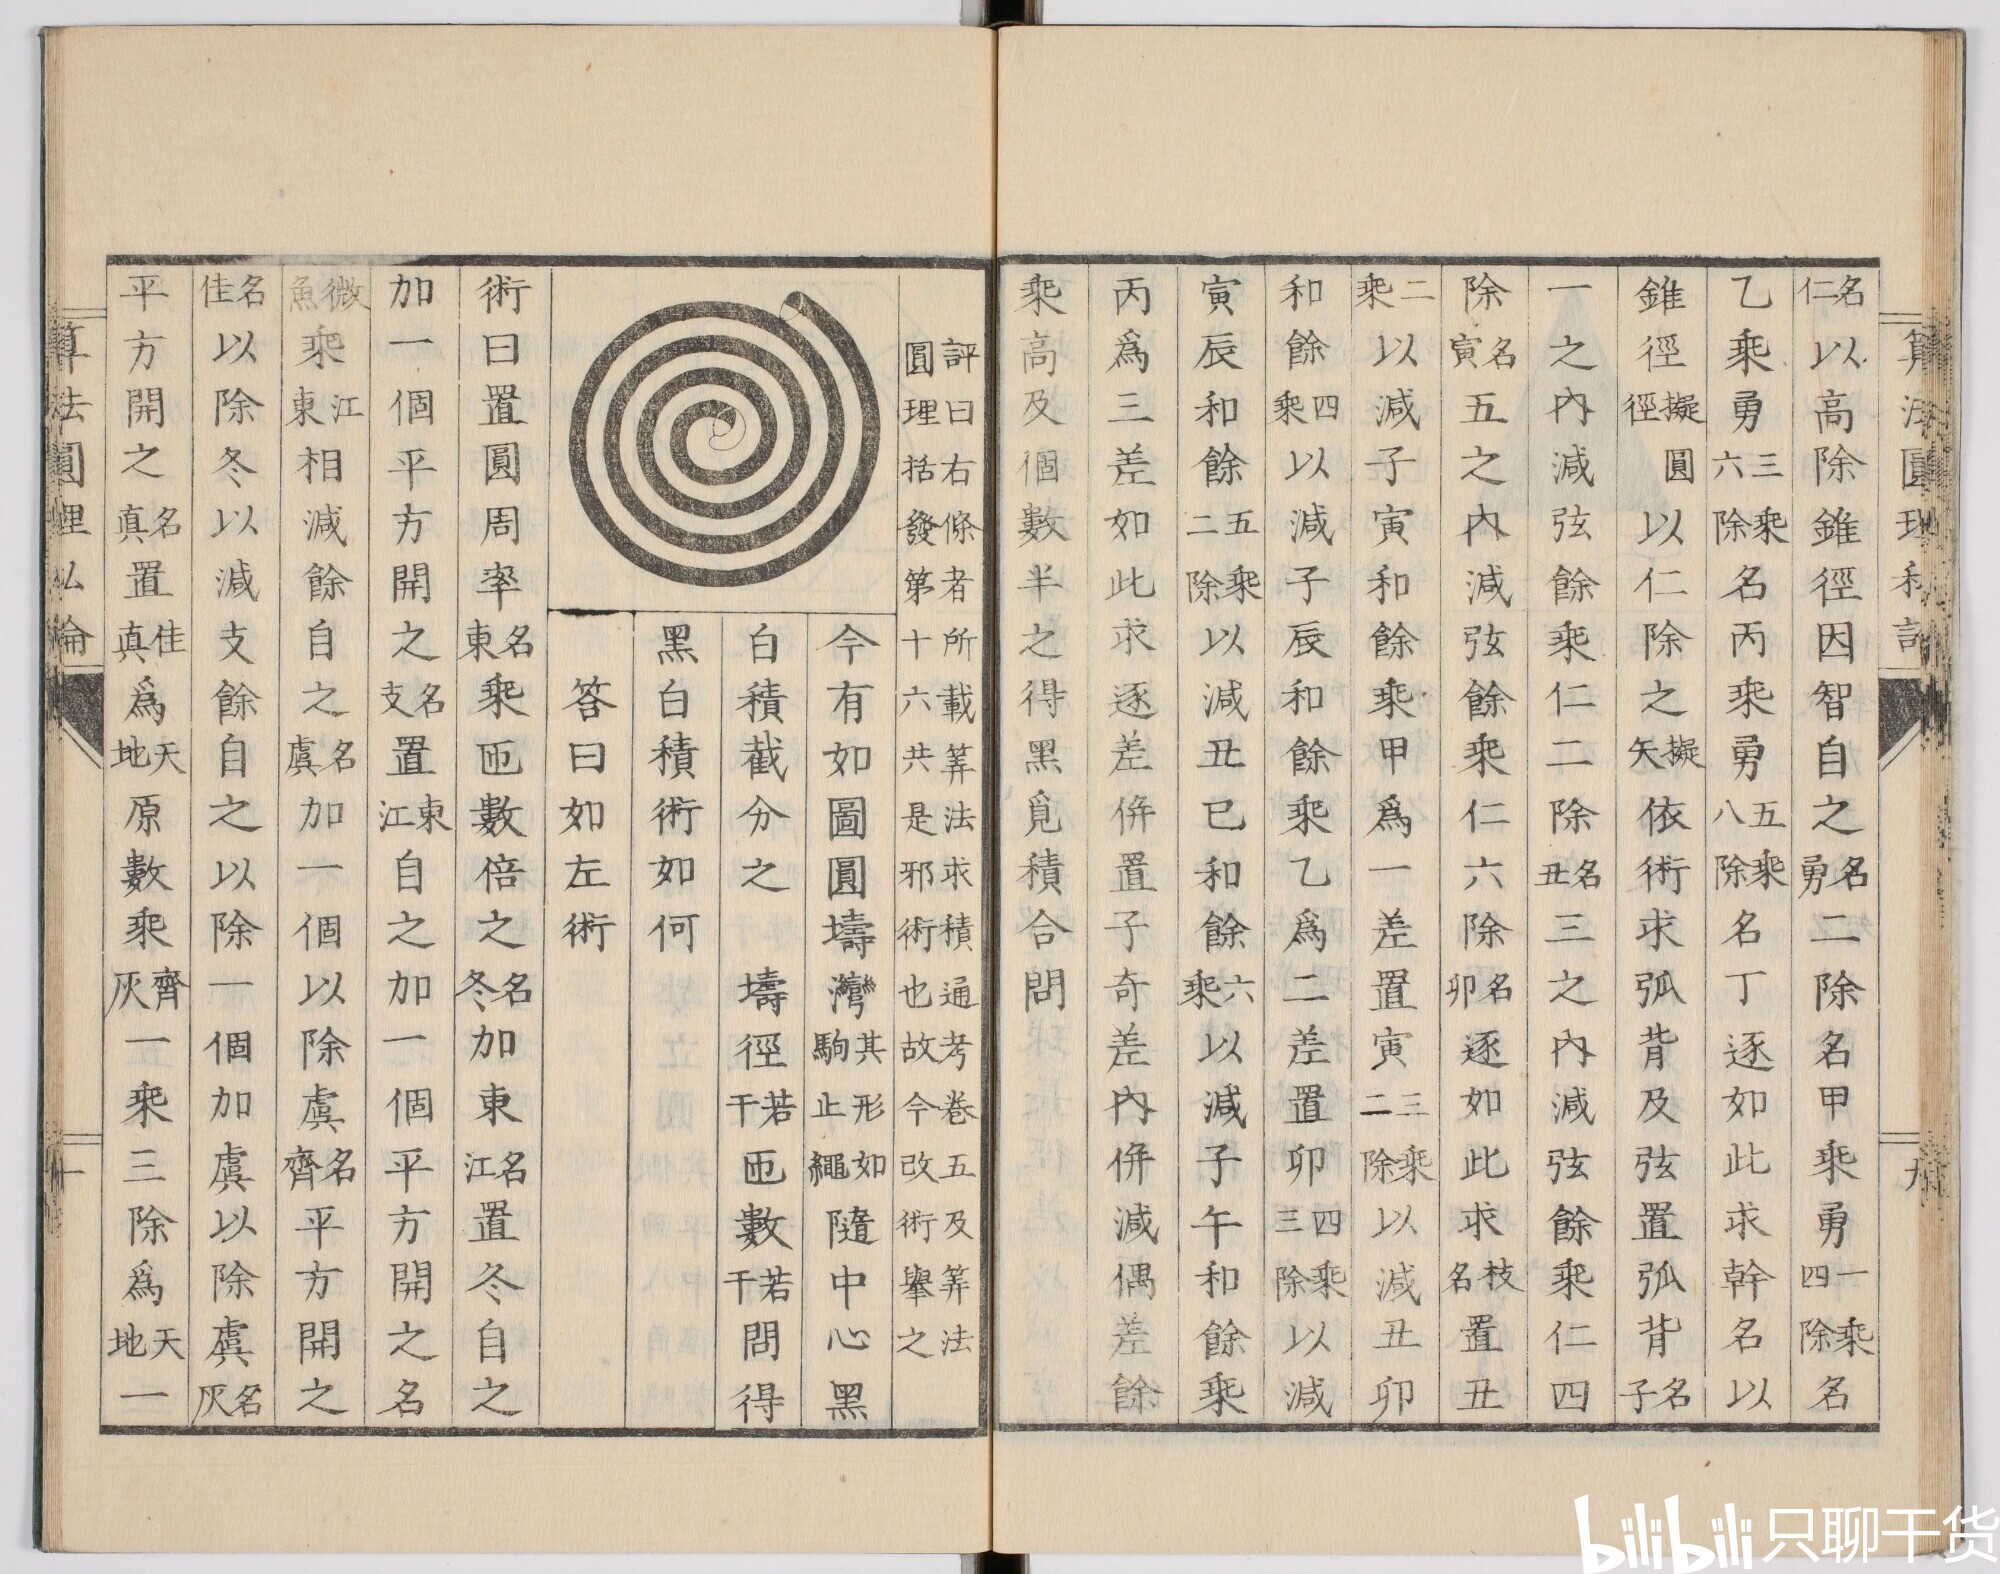 算法圓理私論
九
仁名以高除錐徑因智自之勇名二除名甲乘勇一四乘除名
乙乘勇三六乘除名丙乘勇五八乘除名丁逐如此求幹名以
錐徑擬徑圓以仁除之擬矢依術求弧背及弦置弧背名子
一之內減弦餘乘仁二除名丑三之內減弦餘乘仁四
除名寅五之內減弦餘乘仁六除名卯逐如此求枝名置丑
二乘以減子寅和餘乘甲爲一差置寅三二乘除以減丑卯
和餘四乘以減子辰和餘乘乙爲二差置卯四三乘除以減
寅辰和餘五二乘除以減丑巳和餘六乘以減子午和餘乘
丙爲三差如此求逐差併置子奇差內併減偶差餘
乘高及個數半之得黑覓積合問
評曰右條者所載筭法求積通考卷五及筭法
圓理括發第十六共是邪術也故今改術舉之
今有如圖圓壔灣其形如駒止繩隨中心黑
白積截分之 壔徑若干匝數若干問得
黑白積術如何
答曰如左術
術曰置圓周率名東乘匝數倍之名冬加東名江置冬自之
加一個平方開之名支置東江自之加一個平方開之名
微魚乘江東相減餘自之名虞加一個以除虞名齊平方開之
名佳以除冬以減支餘自之以除一個加虞以除虞名灰
平方開之名真置佳真爲天地原數乘齊灰一乘三除爲天地一
算法圓理私論
十
bilibili 只聊干货